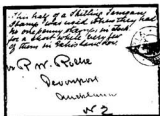 This half of a Shilling Tanganyika
Stamp was used when they had
no one penny stamps in stock
for a short while. Very few
of them in existence now.
P. W. Roche
Devonport
Auckland
N Z